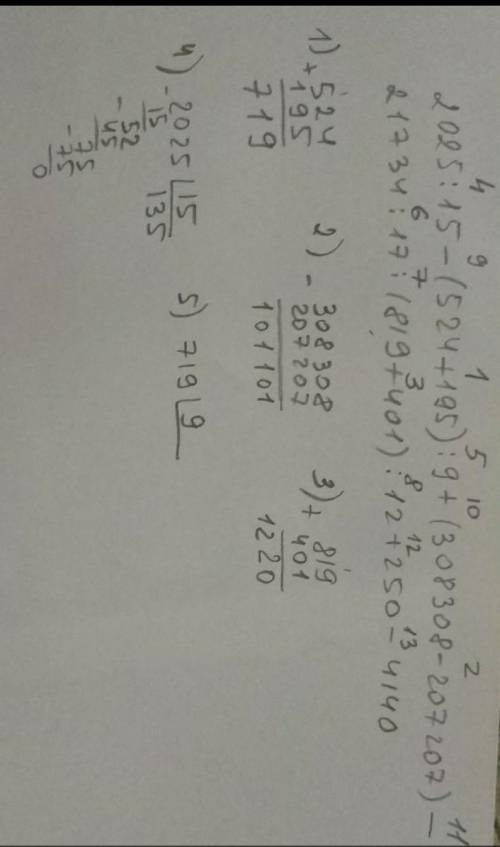 4 9 1 5 10 2 11
2025:15-(524+195):9+(308308-207207)-
6 7 3 8 12 13
21734:17:(819+401):12+250-4140
1) +524 2) -308308 3) +819
195 207207 401
719 101101 1220
4) -2025 15 5) 719 9
15 135
52
-45
-75
75
0